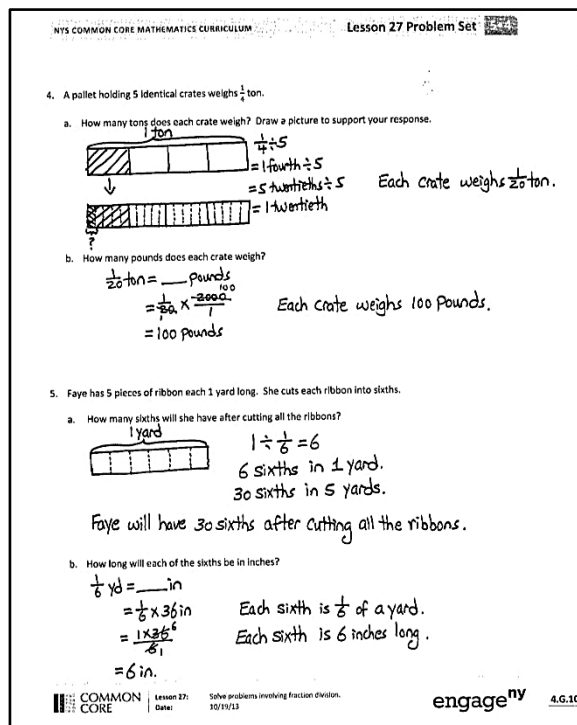 NYS COMMON CORE MATHEMATICS CURRICULUM
Lesson 27 Problem Set
4. A pallet holding 5 identical crates weighs 1/4 ton.
a. How many tons does each crate weigh? Draw a picture to support your response.
1 ton
1/4 ÷ 5
= 1 fourth ÷ 5
= 5 twentieths ÷ 5
= 1 twentieth
Each crate weighs 1/20 ton.
?
b. How many pounds does each crate weigh?
1/20 ton = ___ pounds
= 1/20 × 2000/1
1
100
= 100 pounds
Each crate weighs 100 pounds.
5. Faye has 5 pieces of ribbon each 1 yard long. She cuts each ribbon into sixths.
a. How many sixths will she have after cutting all the ribbons?
1 yard
1 ÷ 1/6 = 6
6 sixths in 1 yard.
30 sixths in 5 yards.
Faye will have 30 sixths after cutting all the ribbons.
b. How long will each of the sixths be in inches?
1/6 yd = ___ in
= 1/6 × 36 in
= 1×36/6
6
1
= 6 in.
Each sixth is 1/6 of a yard.
Each sixth is 6 inches long.
COMMON CORE
Lesson 27: Solve problems involving fraction division.
Date: 10/19/13
engage ny
4.G.10